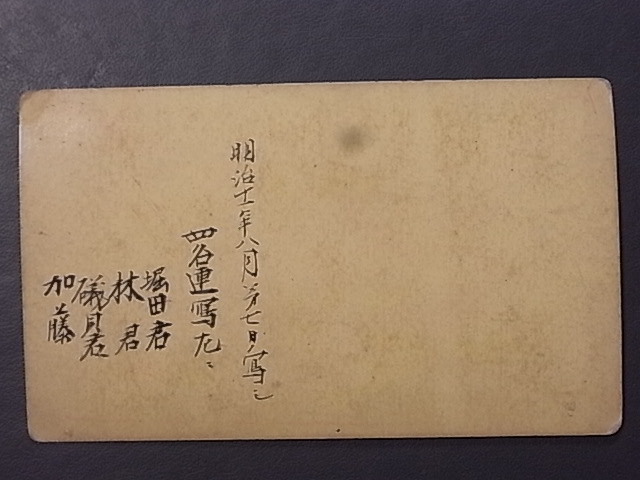 明治十一年八月第七日写之
四名連写左ニ
堀田君
林君
礒貝君
加藤